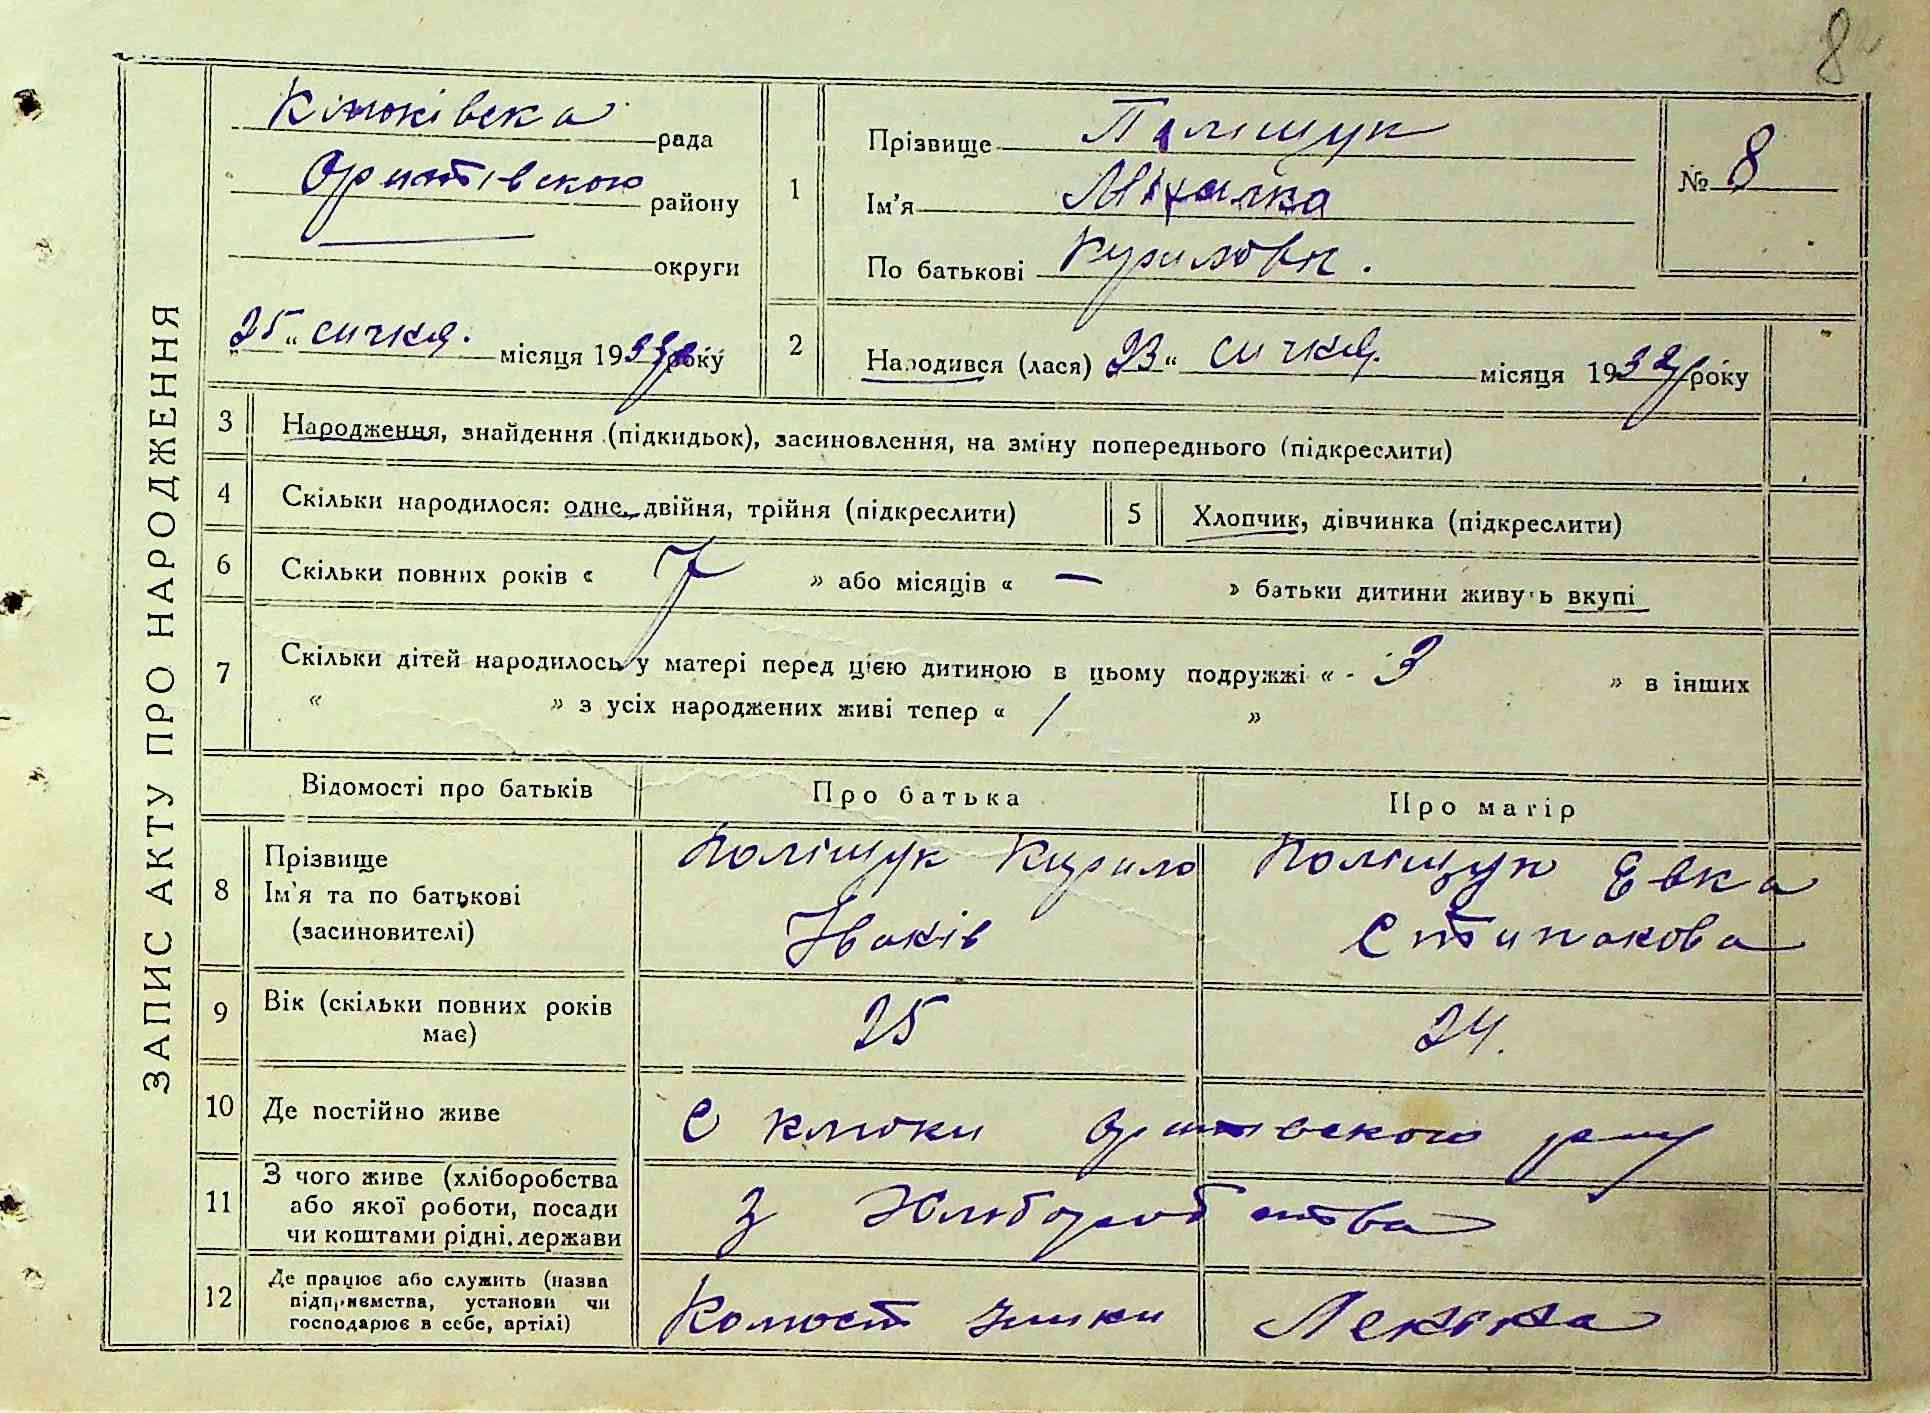 8
ЗАПИС АКТУ ПРО НАРОДЖЕННЯ
рада
району
округи
25 " січня. місяця 1932 року
1
Прізвище Поліщук
Ім'я
По батькові
№ 8
2
Народився (лася) 23 " січня. місяця 1932 року
3 Народження, знайдення (підкидьок), засиновлення, на зміну попереднього (підкреслити)
4 Скільки народилося: одне, двійня, трійня (підкреслити)
5 Хлопчик, дівчинка (підкреслити)
6 Скільки повних років « 7 » або місяців « — » батьки дитини живуть вкупі
7 Скільки дітей народилось у матері перед цією дитиною в цьому подружжі « - 3 » в інших
« » з усіх народжених живі тепер « 1 »
Відомості про батьків Про батька Про матір
8 Прізвище
Ім'я та по батькові
(засиновителі)
Поліщук Кирило
Іванів
Поліщук Евка
9 Вік (скільки повних років
має)
25
24.
10 Де постійно живе
С Клюки району
11 З чого живе (хліборобства
або якої роботи, посади
чи коштами рідні, держави
З Хліборобства
12 Де працює або служить (назва
підприємства, установи чи
господарює в себе, артілі)
Леніна